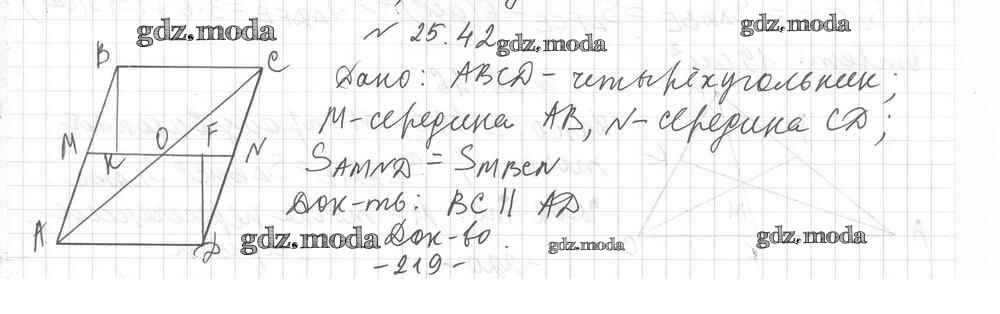 № 25.42
gdz.moda gdz.moda gdz.moda
Дано: ABCD - четырёхугольник;
M-середина AB, N-середина CD;
S AMND = S MBCN
Док-ть: BC || AD
Док-во.
gdz.moda gdz.moda gdz.moda
-219-
B C
M K O F N
A D